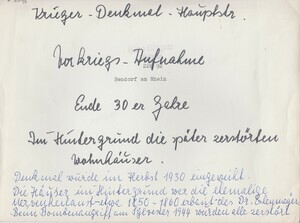 Krüger-Denkmal-Hauptstr.
Vorkriegs-Aufnahme
Bendorf am Rhein
Ende 30er Jahre
Im Hintergrund die später zerstörten
Wohnhäuser.
Denkmal wurde im Herbst 1930 eingeweiht.
Die Häuser im Hintergrund war die ehemalige
1850-1860 erbaut des Dr.
Beim Bombenangriff am 1944 wurden alle zerstört